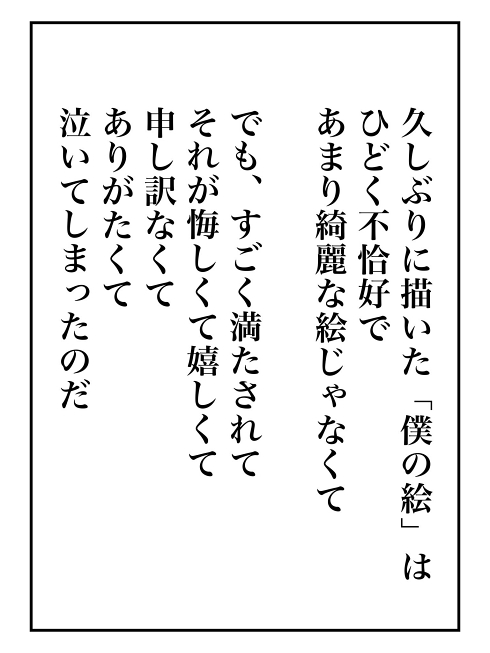 久しぶりに描いた「僕の絵」は
ひどく不恰好で
あまり綺麗な絵じゃなくて
でも、すごく満たされて
それが悔しくて嬉しくて
申し訳なくて
ありがたくて
泣いてしまったのだ